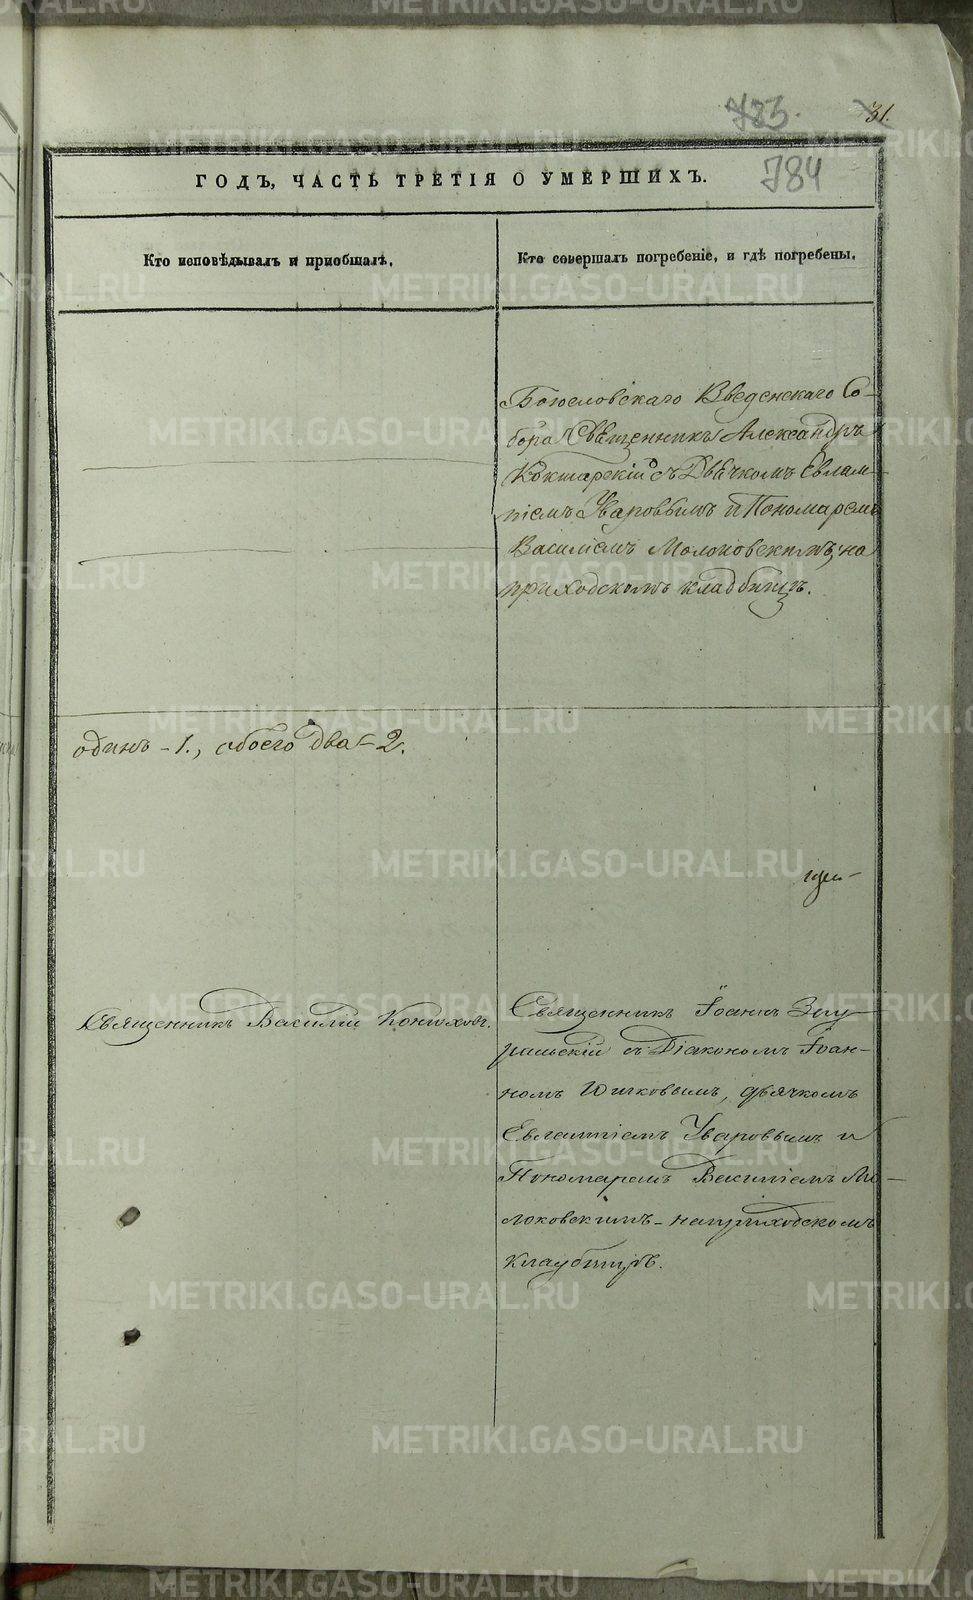 783.
31.
784
ГОДЪ, ЧАСТЬ ТРЕТІЯ О УМЕРШИХЪ.
Кто исповѣдывалъ и приобщалъ.
Кто совершалъ погребеніе, и гдѣ погребены.
Богословскаго Введенскаго Со-
бора Священникъ Александръ
Кокшарскій съ Дьячкомъ Евлам-
піемъ Уваровымъ и Пономаремъ
Василіемъ Молоковскимъ, на
приходскомъ кладбищѣ.
одинъ - 1., обоего два - 2.
Священникъ Василій Конюховъ.
Священникъ Іоаннъ Зау-
ральскій съ Діакономъ Іоан-
номъ Юшковымъ, дьячкомъ
Евлампіемъ Уваровымъ и
Пономаремъ Василіемъ Мо-
локовскимъ - на приходскомъ
кладбищѣ.
METRIKI.GASO-URAL.RU